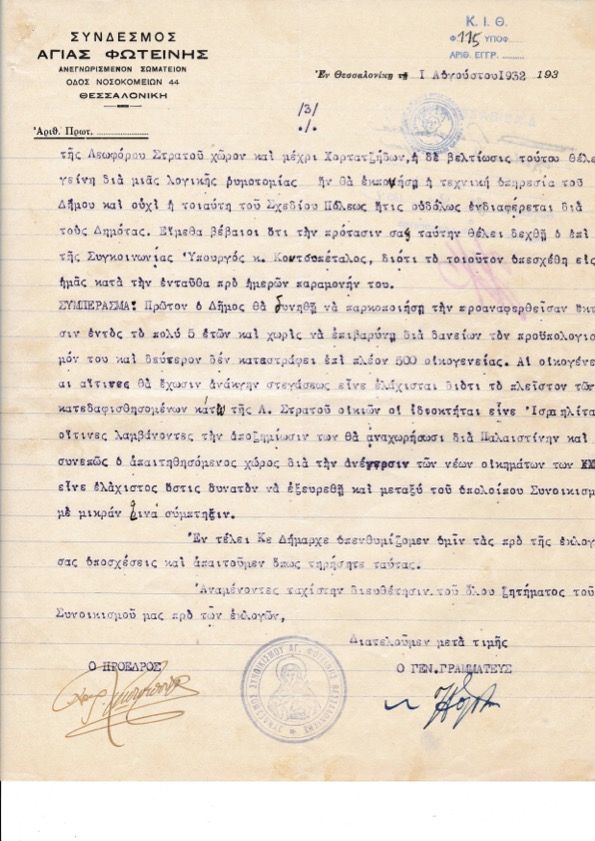 ΣΥΝΔΕΣΜΟΣ
ΑΓΙΑΣ ΦΩΤΕΙΝΗΣ
ΑΝΕΓΝΩΡΙΣΜΕΝΟΝ ΣΩΜΑΤΕΙΟΝ
ΟΔΟΣ ΝΟΣΟΚΟΜΕΙΩΝ 44
ΘΕΣΣΑΛΟΝΙΚΗ
Κ. Ι. Θ.
Φ. 115 ΥΠΟΦ.
ΑΡΙΘ. ΕΓΓΡ.
Ἐν Θεσσαλονίκῃ τῇ I Αὐγούστου 1932 193
Ἀριθ. Πρωτ.
/3/
./.
τῆς Λεωφόρου Στρατοῦ χῶρον καὶ μέχρι Χορτατζήδων, ἡ δὲ βελτίωσις τούτου θέλε
γείνη διὰ μιᾶς λογικῆς ρυμοτομίας ἣν θὰ ἐκπονήσῃ ἡ τεχνική ὑπηρεσία τοῦ
Δήμου καὶ οὐχὶ ἡ τοιαύτη τοῦ Σχεδίου Πόλεως ἥτις οὐδόλως ἐνδιαφέρεται διὰ
τοὺς Δημότας. Εἴμεθα βέβαιοι ὅτι τὴν πρότασιν σας ταύτην θέλει δεχθῇ ὁ ἐπὶ
τῆς Συγκοινωνίας Ὑπουργός κ. Κοντσυπέταλος, διότι τὸ τοιοῦτον ὑπεσχέθη εἰς
ἡμᾶς κατὰ τὴν ἐνταῦθα πρὸ ἡμερῶν παραμονήν του.
ΣΥΜΠΕΡΑΣΜΑ: Πρῶτον ὁ Δῆμος θὰ δυνηθῇ νὰ παρκοποιήσῃ τὴν προαναφερθεῖσαν ἔκτα
σιν ἐντὸς τὸ πολύ 5 ἐτῶν καὶ χωρὶς νὰ ἐπιβαρύνῃ διὰ δανείων τὸν προϋπολογισ
μόν του καὶ δεύτερον δέν καταστράφει ἐπὶ πλέον 500 οἰκογενείας. Αἱ οἰκογένε
αι αἵτινες θὰ ἔχωσιν ἀνάγκην στεγάσεως εἶνε ἐλάχισται διότι τὸ πλεῖστον τῶν
κατεδαφισθησομένων κάτω τῆς Λ. Στρατοῦ οἰκιῶν οἱ ἰδιοκτῆται εἶνε Ἰσραηλῖτα
οἵτινες λαμβάνοντες τὴν ἀποζημίωσιν των θὰ ἀναχωρήσωσι διὰ Παλαιστίνην καὶ
συνεπῶς ὁ ἀπαιτηθησόμενος χῶρος διὰ τὴν ἀνέγερσιν τῶν νέων οἰκημάτων των
εἶνε ἐλάχιστος ὅστις δυνατὸν νὰ ἐξευρεθῇ καὶ μεταξύ τοῦ ὑπολοίπου Συνοικισμ
μὲ μικρὰν τινα σύμπτηξιν.
Ἐν τέλει Κε Δήμαρχε ὑπενθυμίζομεν ὑμῖν τὰς πρὸ τῆς ἐκλογ
σας ὑποσχέσεις καὶ ἀπαιτοῦμεν ὅπως τηρήσητε ταύτας.
Ἀναμένοντες ταχίστην διευθέτησιν τοῦ ὅλου ζητήματος τοῦ
Συνοικισμοῦ μας πρὸ τῶν ἐκλογῶν,
Διατελοῦμεν μετὰ τιμῆς
Ο ΠΡΟΕΔΡΟΣ
Ο ΓΕΝ. ΓΡΑΜΜΑΤΕΥΣ
ΣΥΝΔΕΣΜΟΣ ΣΥΝΟΙΚΙΣΜΟΥ ΑΓ. ΦΩΤΕΙΝΗΣ ΘΕΣΣΑΛΟΝΙΚΗΣ